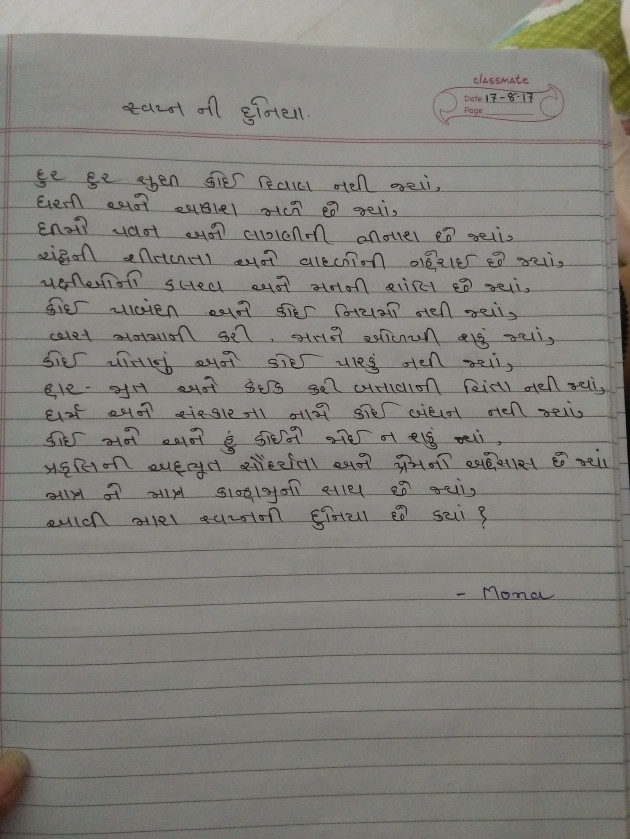 classmate
Date 17-8-17
Page
સ્વપ્ન ની દુનિયા.
દુર દુર સુધી કોઈ દિવાલ નથી જ્યાં,
ધરતી અને આકાશ મળે છે જ્યાં,
ધીમો પવન અને લાગણીની ભીનાશ છે જ્યાં,
ચંદ્રની શીતળતા અને વાદળોની ગહેરાઈ છે જ્યાં,
પક્ષીઓનો કલરવ અને મનની શાંતિ છે જ્યાં,
કોઈ પાબંદી અને કોઈ નિયમો નથી જ્યાં,
બસ મનમાની કરી, મનને ઓળખી શકું જ્યાં,
કોઈ પોતાનું અને કોઈ પારકું નથી જ્યાં,
હાર-જીત અને કંઈક કરી બતાવાની ચિંતા નથી જ્યાં,
ધર્મ અને સંસ્કારના નામે કોઈ બંધન નથી જ્યાં,
કોઈ મને અને હું કોઈને ખોઈ ન શકું જ્યાં,
પ્રકૃતિની અદ્ભૂત સૌંદર્યતા અને પ્રેમનો અહેસાસ છે જ્યાં
માત્ર ને માત્ર કાન્હાજીનો સાથ છે જ્યાં,
આવી મારા સ્વપ્નની દુનિયા છે ક્યાં?
- Mona